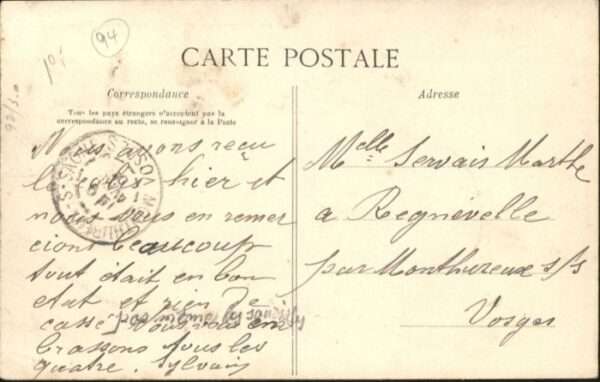 94
CARTE POSTALE
Correspondance
Tous les pays étrangers n'acceptent pas la
correspondance au recto, se renseigner à la Poste
Nous avons reçu
le colis hier et
nous vous en remer
cions beaucoup
tout était en bon
état et rien de
cassé nous vous em
brassons tous les
quatre. Sylvain
Adresse
Melle Servais Marthe
a Regnévelle
par Monthureux s/s
Vosges